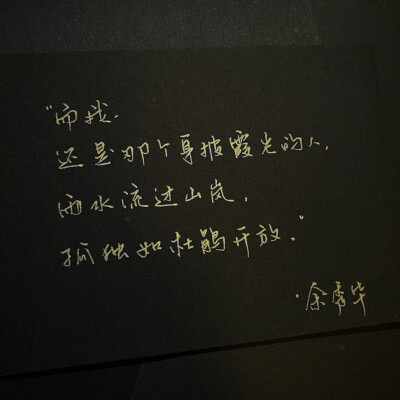 “而我.
还是那个身披霞光的人,
雨水流过山岚,
孤独如杜鹃开放.”
·余秀华